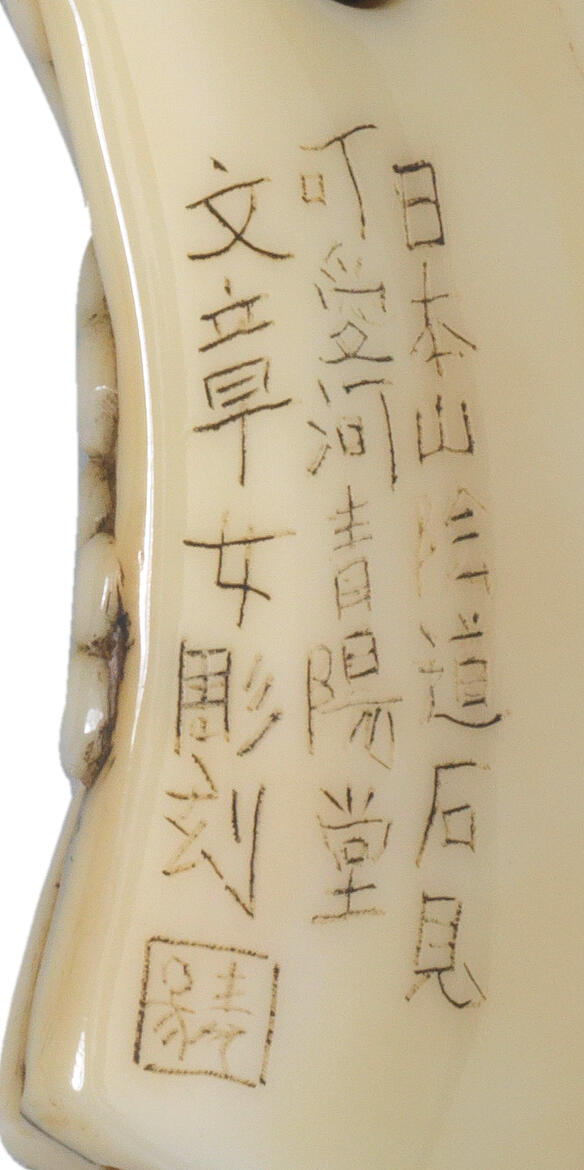 日本山陰道石見
可愛河青陽堂
文章女彫刻